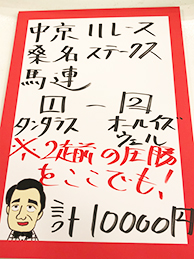 中京11レース
桑名ステークス
馬連
1 - 2
タンタラス オールイズウェル
※2走前の圧勝
をここでも!
計10000円